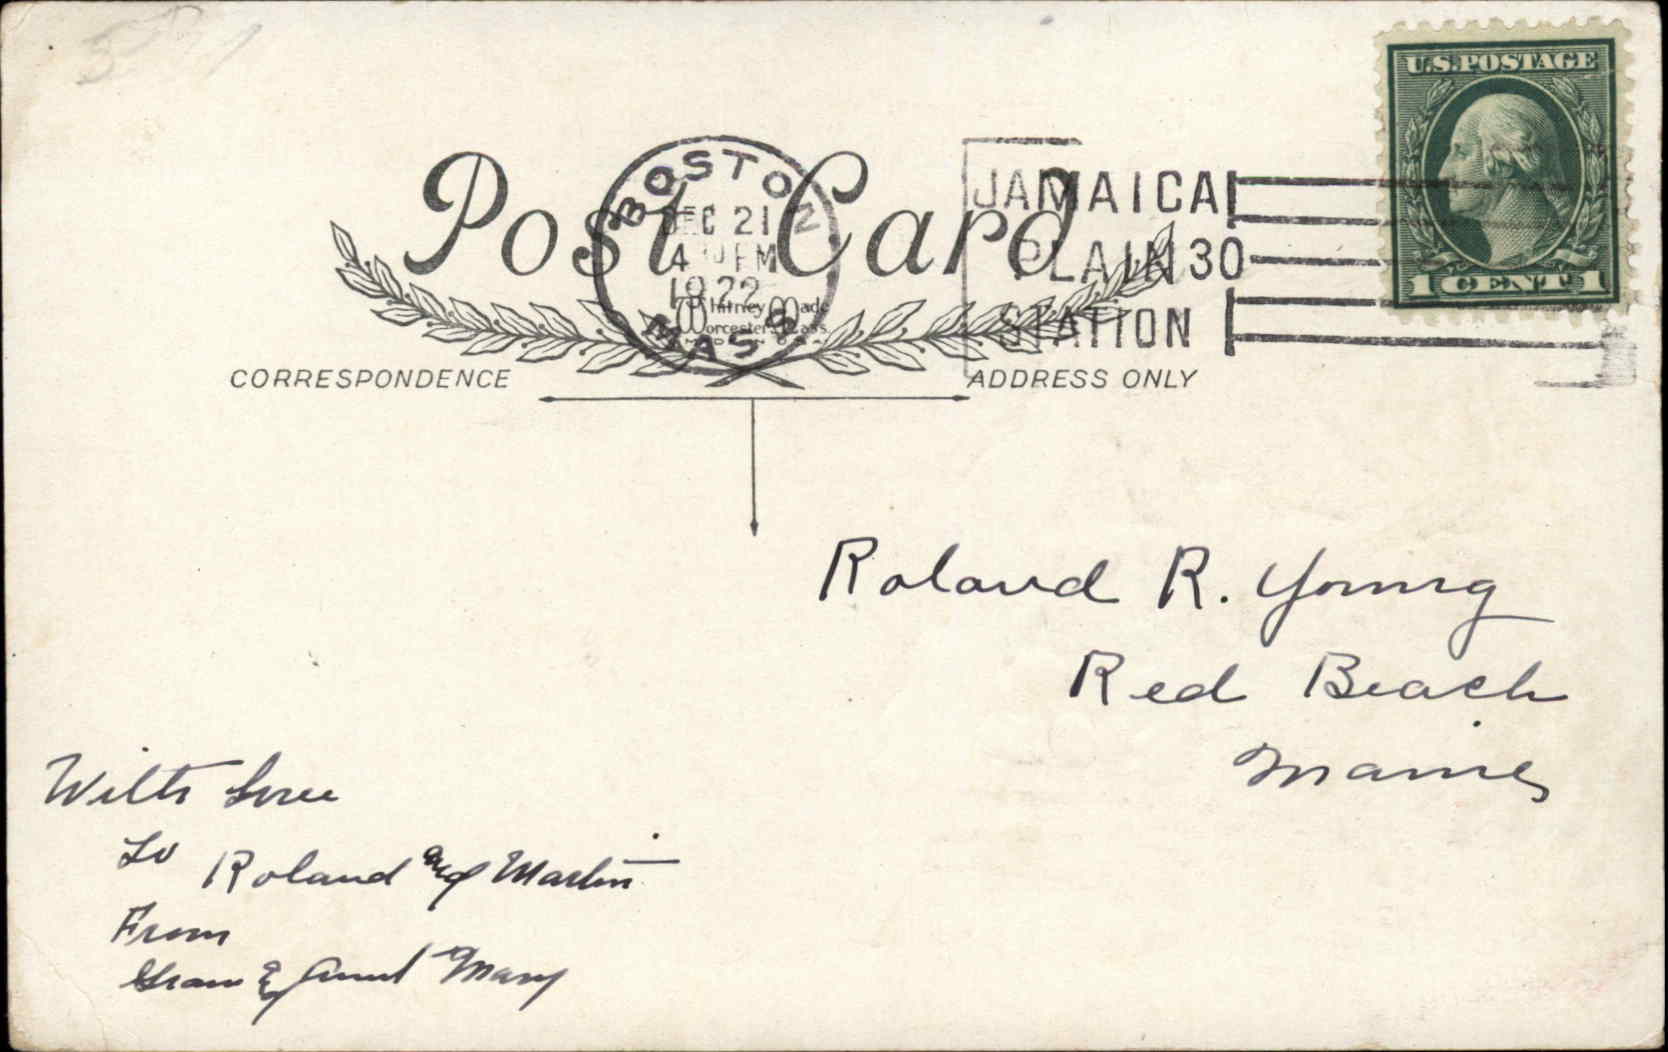 U.S. POSTAGE
1 CENT 1
Post Card
BOSTON
DEC 21
4 PM
1922
MASS
JAMAICA
PLAIN 30
STATION
Whitney Made
Worcester, Mass
CORRESPONDENCE
ADDRESS ONLY
Roland R. Young
Red Beach
Maine
With Love
to Roland and Martin
From
Gram & Aunt Mary